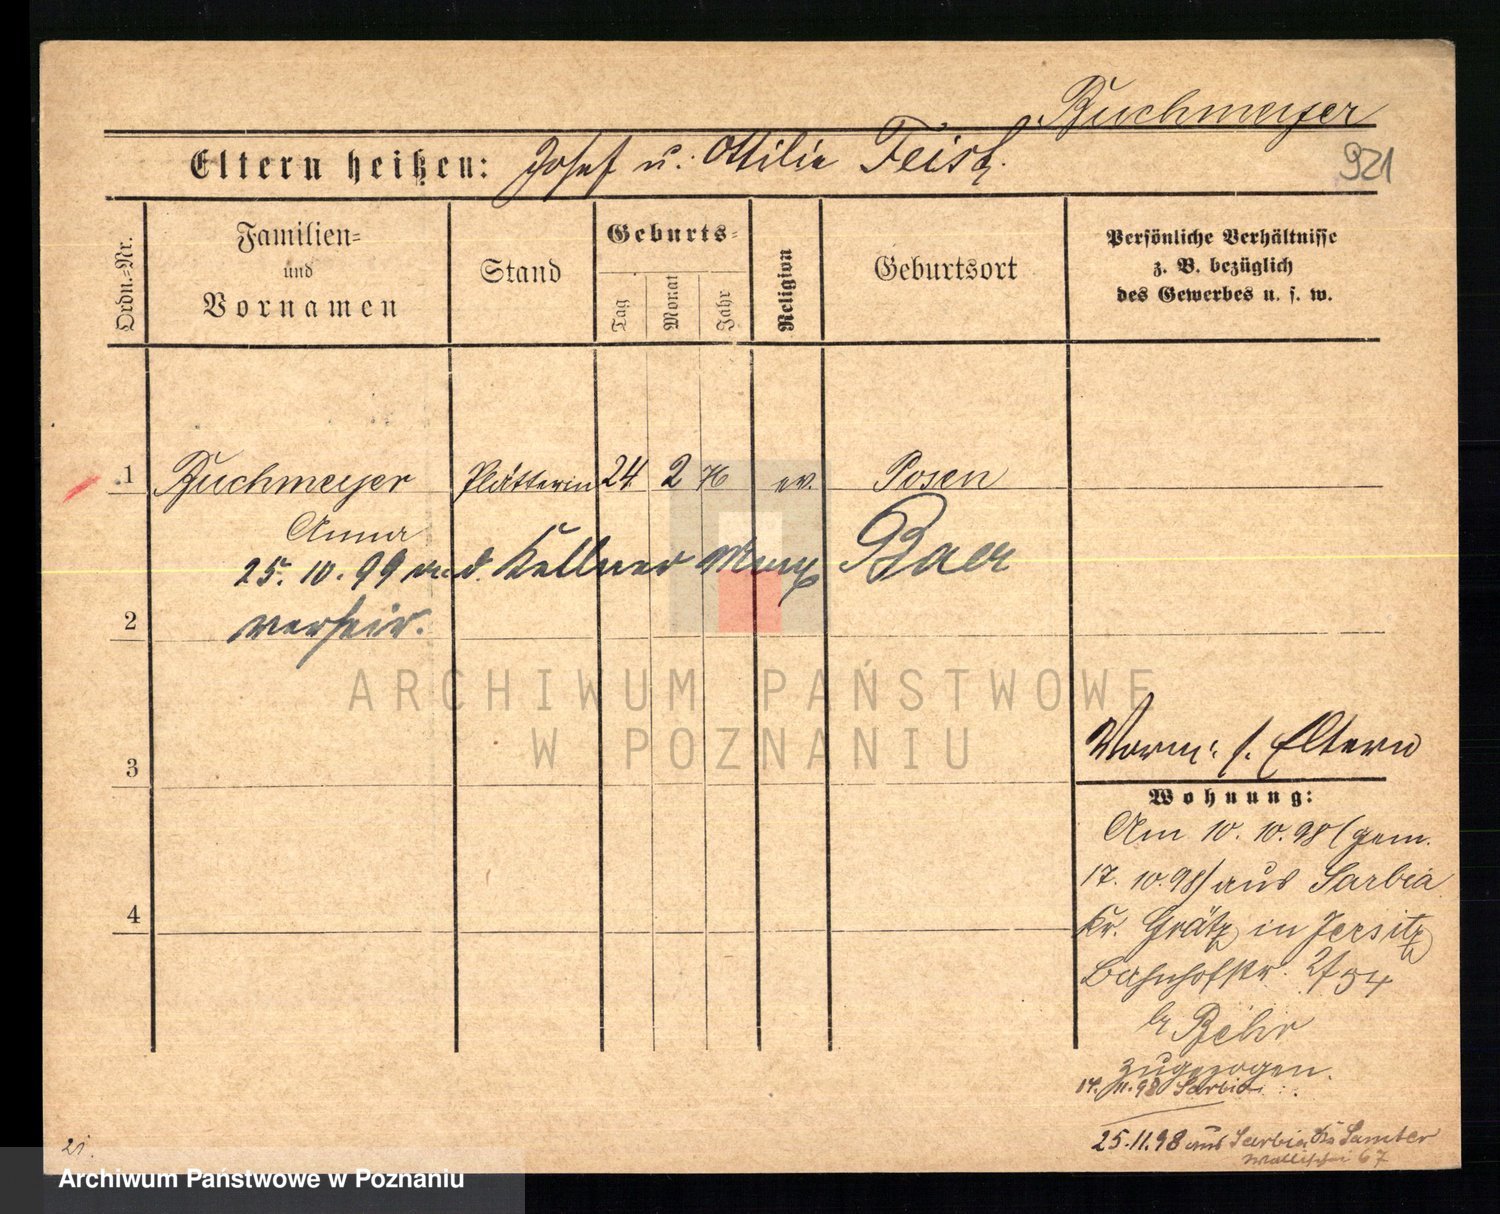 Buchmeyer
Eltern heißen: Josef u. Ottilie Feist.
921
Ordn.-Nr.
Familien-
und
Vornamen
Stand
Geburts-
Tag
Monat
Jahr
Religion
Geburtsort
Persönliche Verhältnisse
z. B. bezüglich
des Gewerbes u. s. w.
1 Buchmeyer Plätterin 24 2 76 ev. Posen
Anna
25. 10. 99 m. d. Kellner Max Baer
2 verheir.
ARCHIWUM PAŃSTWOWE
W POZNANIU
3
Vorm: s. Eltern
Wohnung:
Am 10. 10. 98 (gem.
17. 10. 98) aus Sarbia
4
Kr. Grätz in Jersitz
Bahnhofstr. 54
b/ Behr
zugezogen.
14. 11. 98 Sarbia
25. 11. 98 aus Sarbia Kr Samter
Wallischei 67
21.
Archiwum Państwowe w Poznaniu